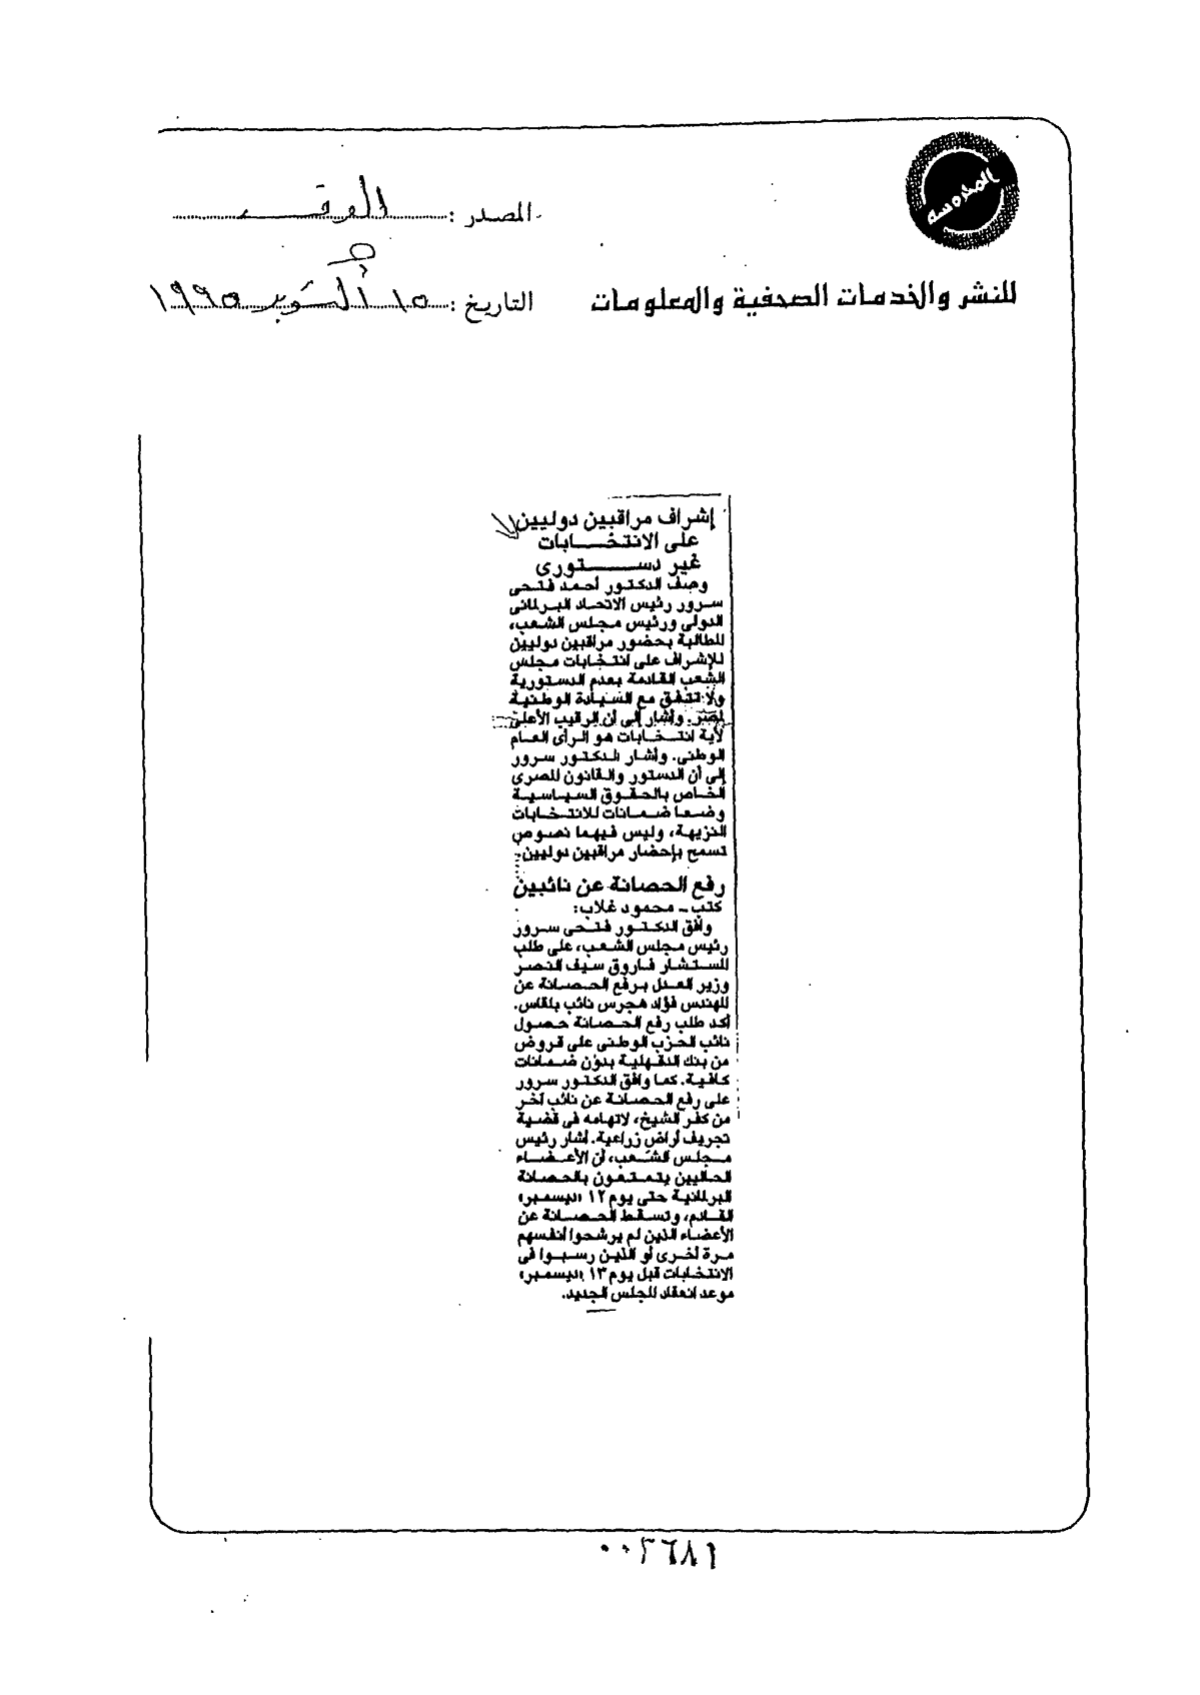 المحروسة
للنشر والخدمات الصحفية والمعلومات
المصدر : الوفد
التاريخ : ١٥ أكتوبر ١٩٩٥
إشراف مراقبين دوليين
على الانتخـــــابات
غير دســــــتورى
وصف الدكتور أحمد فتحى
سرور رئيس الاتحاد البرلمانى
الدولى ورئيس مجلس الشعب،
المطالبة بحضور مراقبين دوليين
للإشراف على انتخابات مجلس
الشعب القادمة بعدم الدستورية
ولا تتفق مع السيادة الوطنية
لمصر. وأشار إلى أن الرقيب الأعلى
لأية انتخابات هو الرأى العام
الوطنى. وأشار الدكتور سرور
إلى أن الدستور والقانون المصرى
الخاص بالحقوق السياسية
وضعا ضمانات للانتخابات
النزيهة، وليس فيهما نصوص
تسمح بإحضار مراقبين دوليين.
رفع الحصانة عن نائبين
كتب ـ محمود غلاب:
وافق الدكتور فتحى سرور
رئيس مجلس الشعب، على طلب
المستشار فاروق سيف النصر
وزير العدل برفع الحصانة عن
المهندس فؤاد هجرس نائب بلقاس.
أكد طلب رفع الحصانة حصول
نائب الحزب الوطنى على قروض
من بنك الدقهلية بدون ضمانات
كافية. كما وافق الدكتور سرور
على رفع الحصانة عن نائب آخر
من كفر الشيخ، لاتهامه فى قضية
تجريف أراض زراعية. أشار رئيس
مجلس الشعب، أن الأعضاء
الحاليين يتمتعون بالحصانة
البرلمانية حتى يوم ١٢ «ديسمبر»
القادم، وتسقط الحصانة عن
الأعضاء الذين لم يرشحوا أنفسهم
مرة أخرى أو الذين رسبوا فى
الانتخابات قبل يوم ١٣ «ديسمبر»
موعد انعقاد المجلس الجديد.
٠٠٢٦٨١